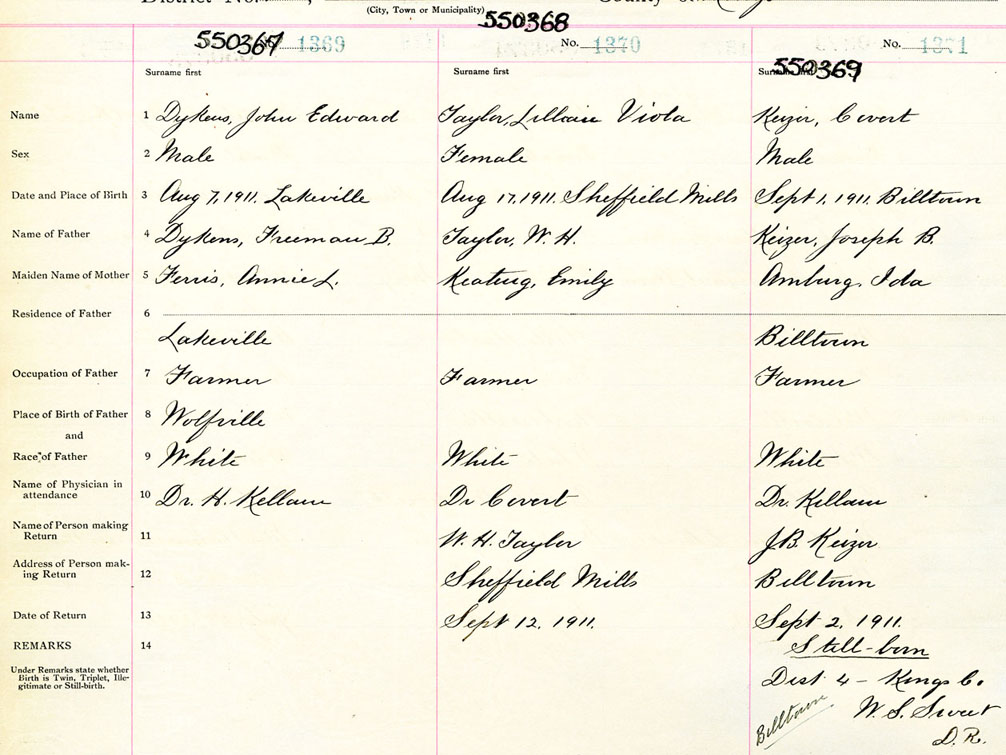 District No.
(City, Town or Municipality)
550367 No. 1369
550368 No. 1370
550369 No. 1371
Surname first Surname first Surname first
Name 1 Dykens, John Edward Taylor, Lillian Viola Keizer, Covert
Sex 2 Male Female Male
Date and Place of Birth 3 Aug 7, 1911. Lakeville Aug 17, 1911. Sheffield Mills Sept 1, 1911. Billtown
Name of Father 4 Dykens, Freeman B. Taylor, W. H. Keizer, Joseph B.
Maiden Name of Mother 5 Ferris, Annie L. Keating, Emily Amburg, Ida
Residence of Father 6
Lakeville Billtown
Occupation of Father 7 Farmer Farmer Farmer
Place of Birth of Father 8 Wolfville
and
Race of Father 9 White White White
Name of Physician in
attendance 10 Dr. H. Killam Dr Covert Dr. Killam
Name of Person making
Return 11 W. H. Taylor J.B. Keizer
Address of Person mak-
ing Return 12 Sheffield Mills Billtown
Date of Return 13 Sept 12, 1911. Sept 2, 1911.
REMARKS 14 Still-born
Under Remarks state whether
Birth is Twin, Triplet, Ille-
gitimate or Still-birth.
Dist 4 - Kings Co.
Billtown W. S. Sweet
D. R.